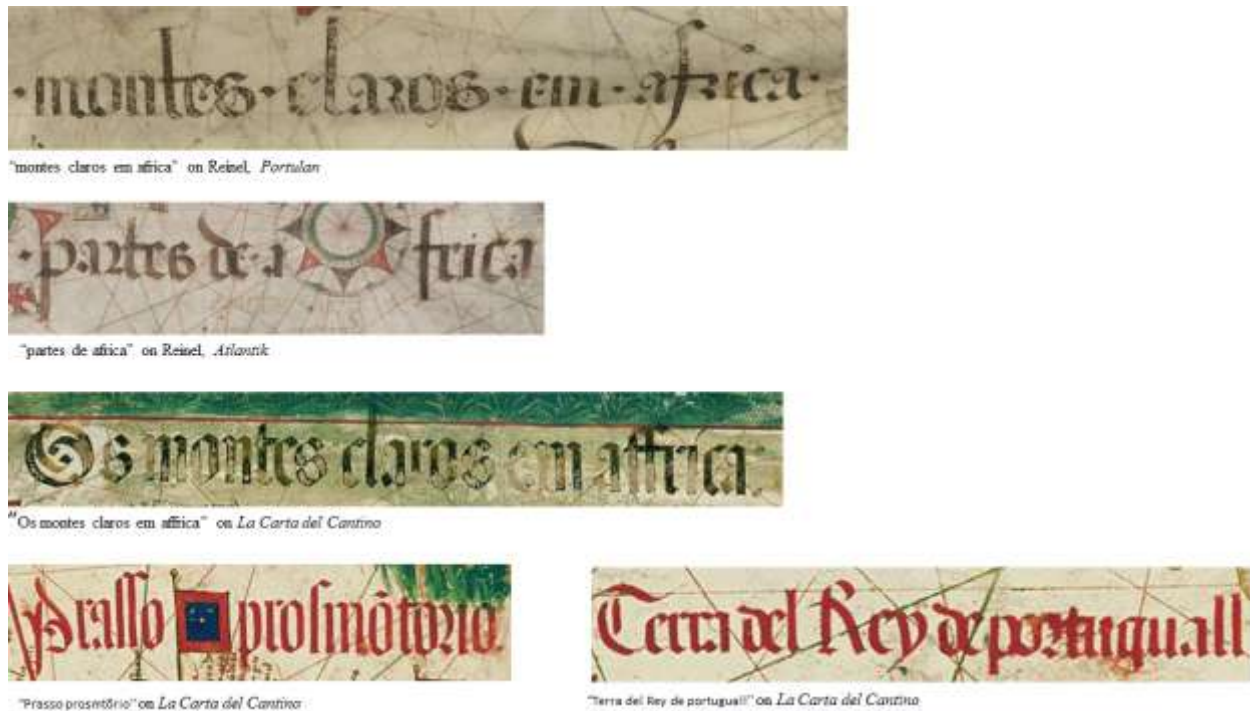 ·montes·claros·em·africa·
"montes claros em africa" on Reinel, Portulan
·partes de·a frica
"partes de africa" on Reinel, Atlantik
Os montes claros em affrica.
"Os montes claros em affrica" on La Carta del Cantino
Prasso prosmõtorio.
"Prasso prosmtõrio" on La Carta del Cantino
Terra del Rey de portuguall
"Terra del Rey de portuguall" on La Carta del Cantino